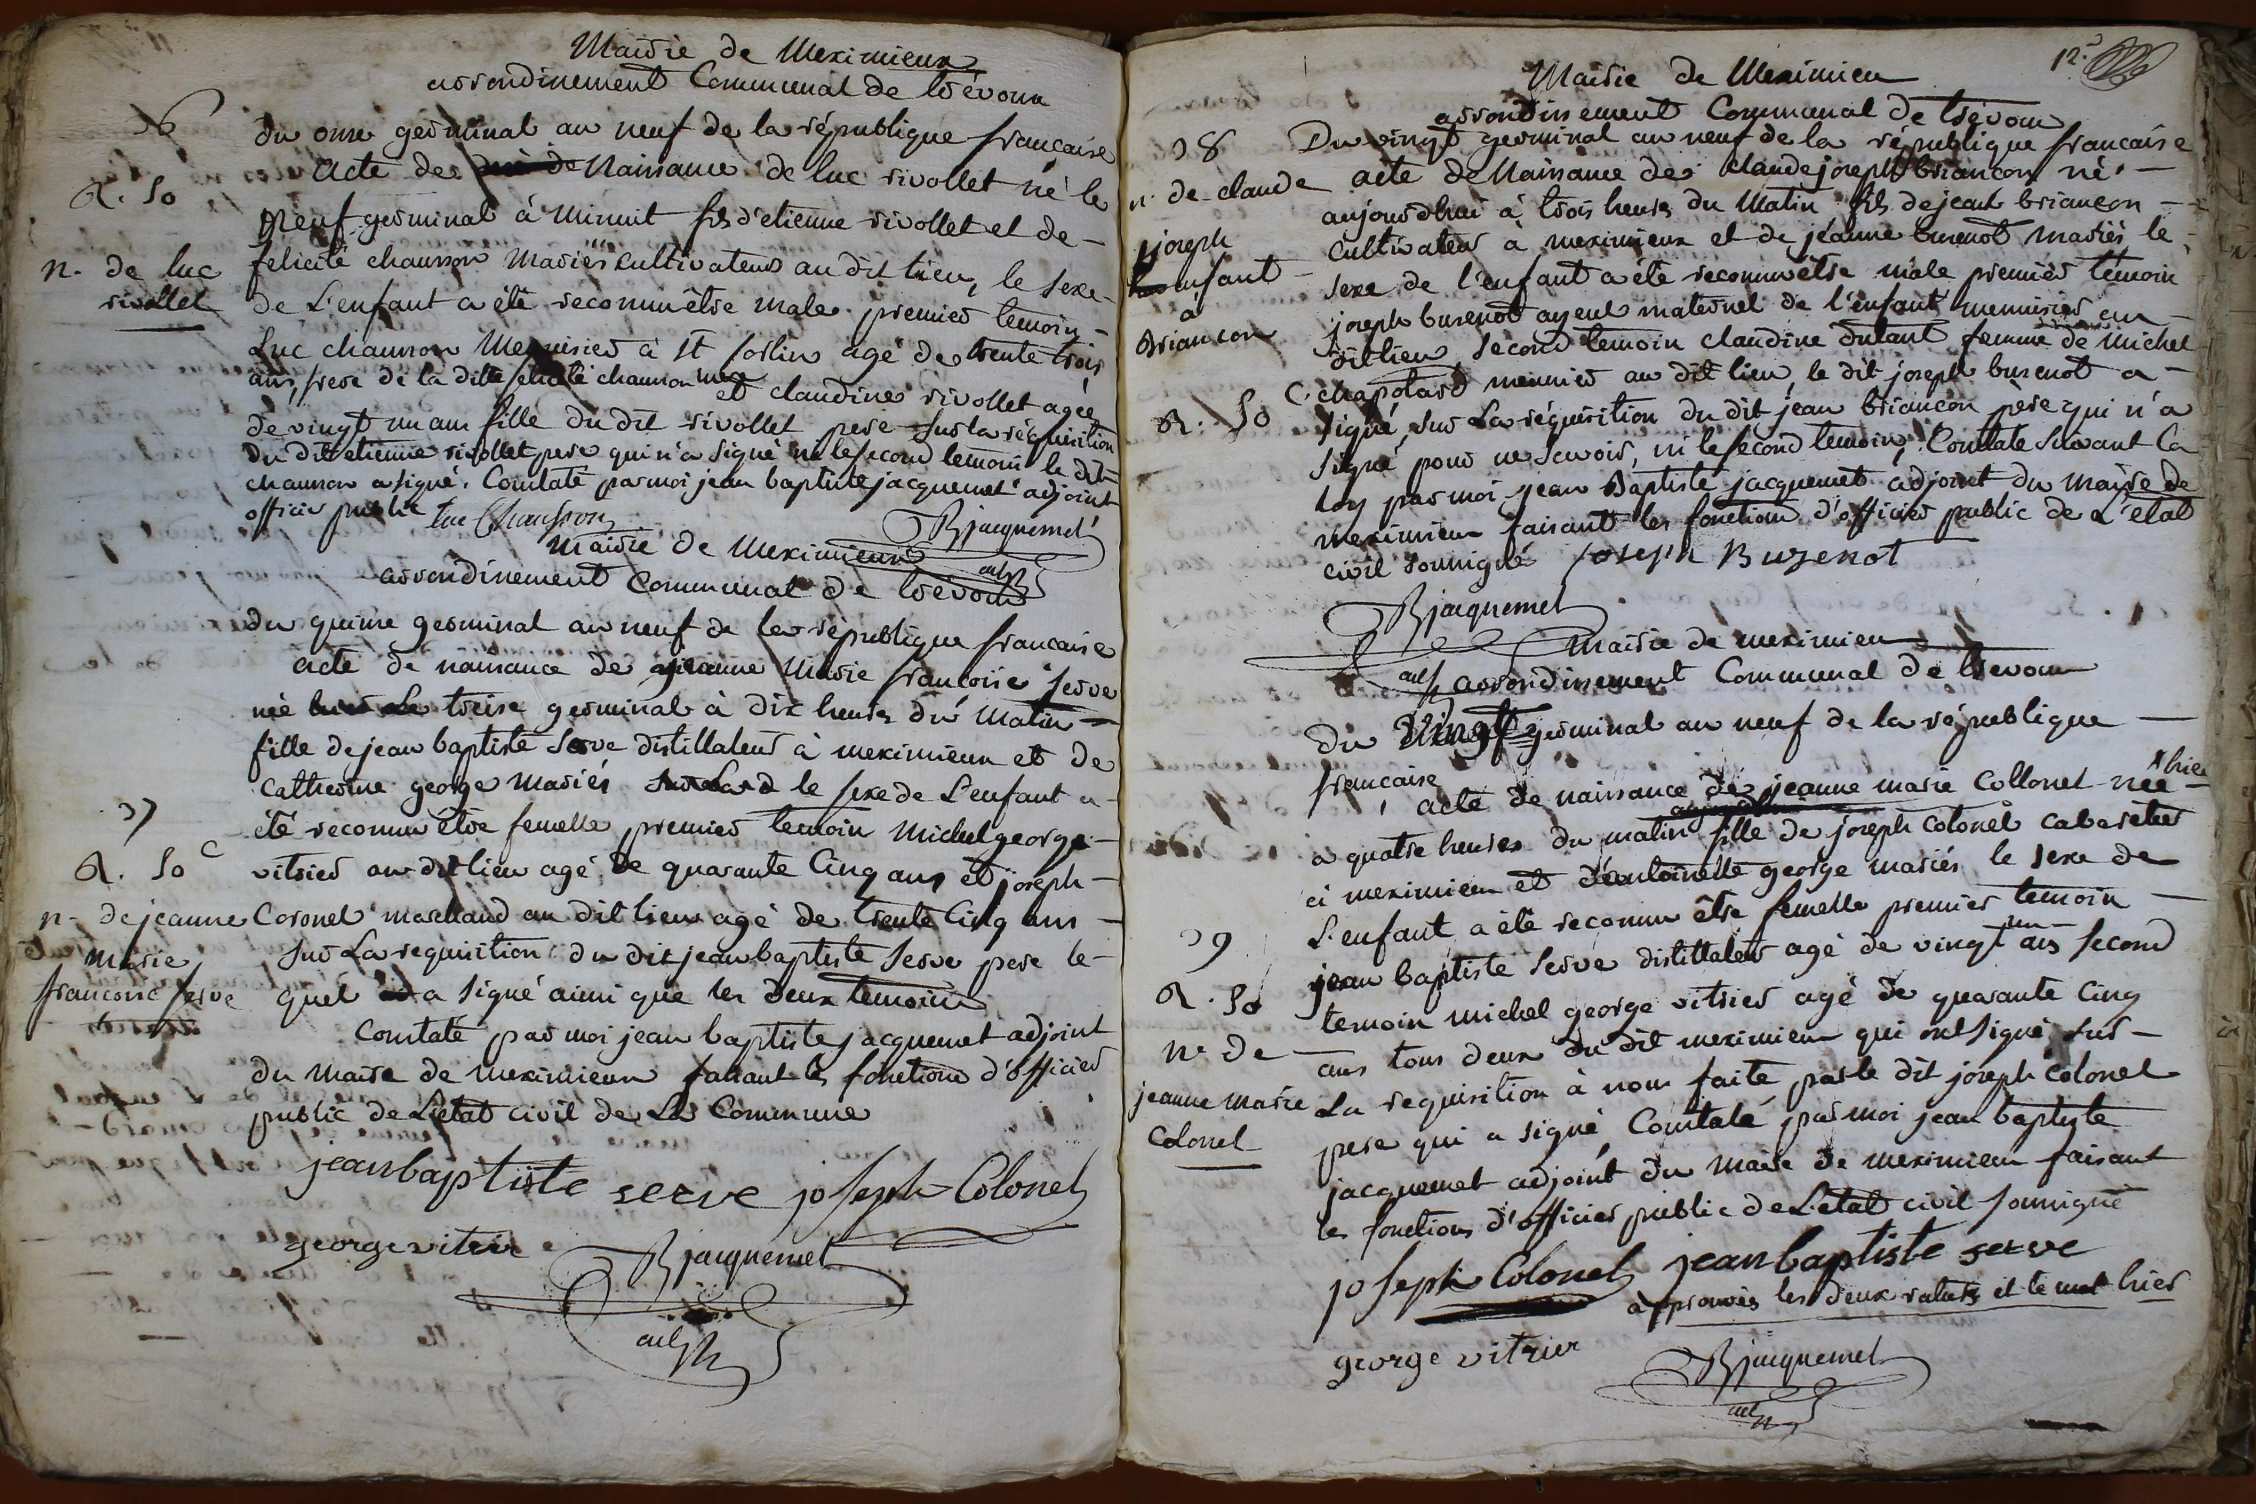 Mairie de Meximieux
arrondinement Communal de trévoux
36
du onze germinal an neuf de la république francaise
acte de Naissance de luc rivollet né le
R. 50
neuf germinal à Minuit fils d'etienne rivollet et de
n. de luc
rivollet
felicité chausson Mariés cultivateurs au dit lieu, le sexe
de L'enfant a été reconnu être male premier temoin
Luc chausson Menuisier à St sorlin agé de trente trois
ans, frere de la ditte felicité chausson
et claudine rivollet agée
de vingt un ans fille du dit rivollet pere sur la réquisition
du dit etienne rivollet pere qui n'a signé ni le second temoin le dit
chausson a signé. Constaté par moi jean baptiste jacquemet adjoint
officier public luc Chausson
Bjacquemet
adjt
Mairie de Meximieux
arrondinement Communal de trévoux
du quinze germinal an neuf de la république francaise
acte de naissance de jeanne Marie francoise serve
née le treise germinal à dix heures du Matin
fille de jean baptiste Serve distillateur à meximieux et de
Catherine george Mariés le sexe de L'enfant a
37
été reconnu être femelle premier temoin Michel george
R. 50 c
vitrier au dit lieu agé de quarante Cinq ans et joseph
n. de jeanne
Marie
francoise serve
Coronel marchand au dit lieu agé de trente Cinq ans
sur La requisition du dit jean baptiste Serve pere le
quel a signé ainsi que les deux temoins
Constaté par moi jean baptiste jacquemet adjoint
du Maire de Meximieux faisant les fonctions d'officier
public de L'état civil de La Commune
jean baptiste serve joseph Colonel
george vitrier
Bjacquemet
adjt
12.
Mairie de Meximieu
arrondinsement Communal de trevoux
38
Du vingt germinal an neuf de la république francaise
n. de claude
joseph
enfant
a
Briancon
acte de Naissance de claude joseph briancon né
aujourdhui à trois heures du Matin fils de jean briancon
cultivateur à meximieux et de jeanne burenot Mariés le
sexe de l'enfant a été reconnu être male premier temoin
joseph burenot ayeul maternel de l'enfant menuisier au
dit lieu, second temoin claudine dutant femme de michel
R. 50 C.
chapolard meunier au dit lieu, le dit joseph burenot a
signé, sur La réquisition du dit jean briancon père qui n'a
signé pour ne savoir, ni le second temoin, Constaté suivant la
loy par moi jean Baptiste jacquemet adjoint du maire de
meximieux faisant les fonctions d'officier public de L'état
civil soussigné joseph Buzenot
Bjacquemet
adjt
Mairie de meximieu
arrondinsement Communal de trevoux
du Vingt germinal an neuf de la république
francaise
acte de naissance de jeanne marie Collonel née hier
a quatre heures du matin fille de joseph colonel cabaretier
a meximieu et d'entoinette george mariés le sexe de
39
L'enfant a été reconnu être femelle premier temoin
jean baptiste Serve distillateur agé de vingt un ans second
R. 50
temoin michel george vitrier agé de quarante Cinq
n. de
jeanne marie
Colonel
ans tous deux du dit meximieu qui ont signé sur
La requisition à nous faite par le dit joseph colonel
pere qui a signé, Constaté par moi jean baptiste
jacquemet adjoint du Maire de meximieu faisant
les fonctions d'officier public de L'état civil soussigné
joseph Colonel jean baptiste serve
approuvés les deux ratures et le mot hier
george vitrier
Bjacquemet
adjt